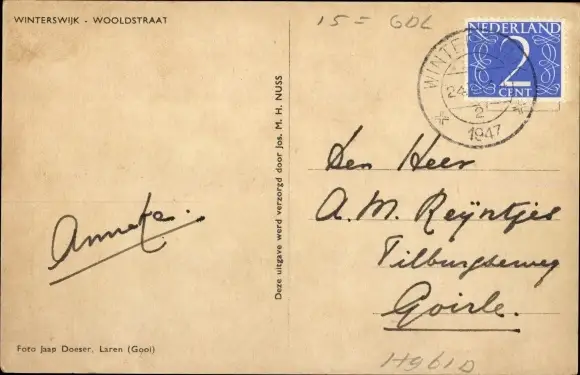 WINTERSWIJK - WOOLDSTRAAT
15 = GDL
NEDERLAND
2
CENT
WINTER
24
2
1947
Den Heer
A. M. Reÿntjes
Tilburgseweg
Goirle.
Anneke.
Deze uitgave werd verzorgd door Jos. M. H. NUSS
Foto Jaap Doeser, Laren (Gooi)
H961D